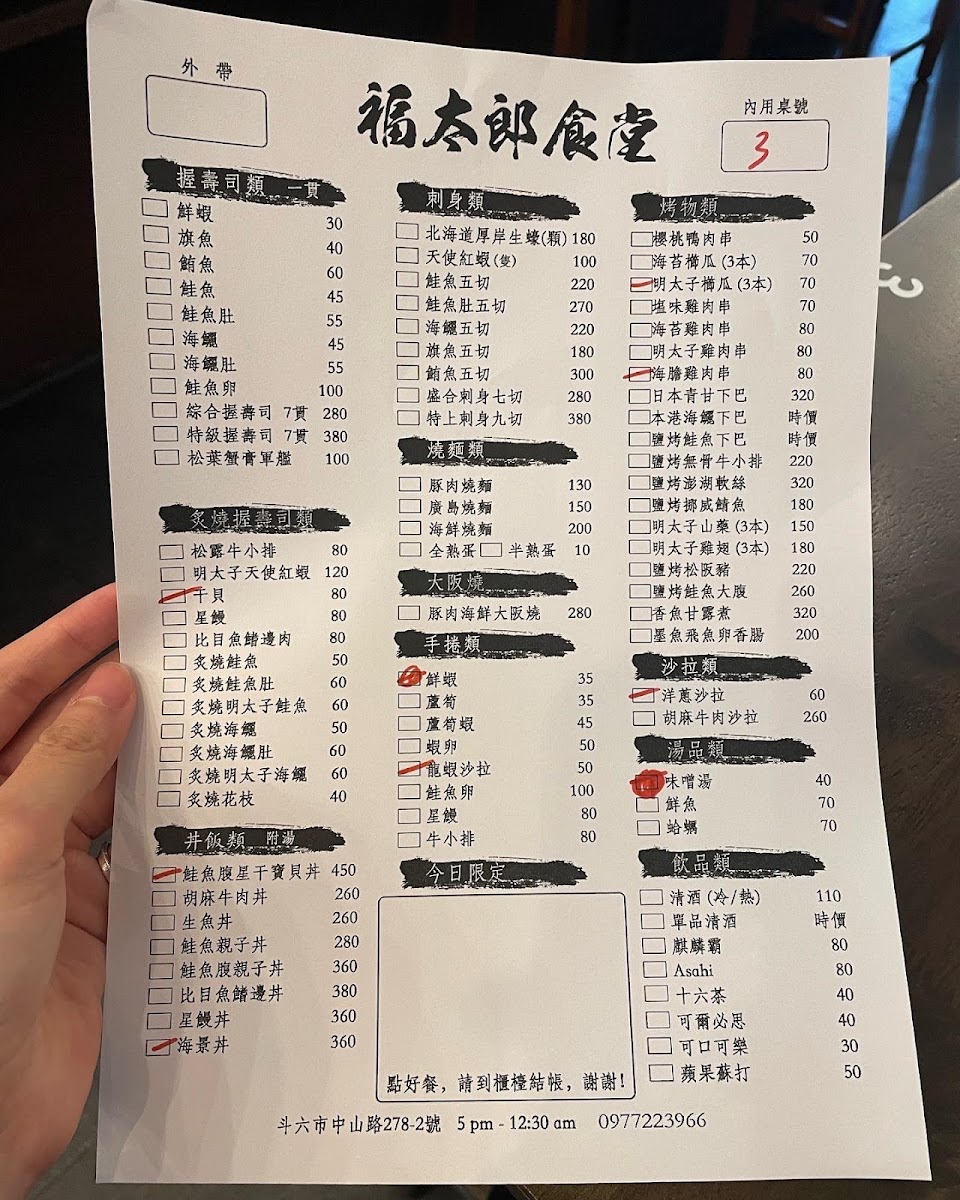 外帶
福太郎食堂
內用桌號
3
握壽司類 一貫
鮮蝦 30
旗魚 40
鮪魚 60
鮭魚 45
鮭魚肚 55
海鱺 45
海鱺肚 55
鮭魚卵 100
綜合握壽司 7貫 280
特級握壽司 7貫 380
松葉蟹膏軍艦 100
炙燒握壽司類
松露牛小排 80
明太子天使紅蝦 120
干貝 80
星鰻 80
比目魚鰭邊肉 80
炙燒鮭魚 50
炙燒鮭魚肚 60
炙燒明太子鮭魚 60
炙燒海鱺 50
炙燒海鱺肚 60
炙燒明太子海鱺 60
炙燒花枝 40
丼飯類 附湯
鮭魚腹星干寶貝丼 450
胡麻牛肉丼 260
生魚丼 260
鮭魚親子丼 280
鮭魚腹親子丼 360
比目魚鰭邊丼 380
星饅丼 360
海景丼 360
刺身類
北海道厚岸生蠔(顆) 180
天使紅蝦(隻) 100
鮭魚五切 220
鮭魚肚五切 270
海鱺五切 220
旗魚五切 180
鮪魚五切 300
盛合刺身七切 280
特上刺身九切 380
燒麵類
豚肉燒麵 130
廣島燒麵 150
海鮮燒麵 200
全熟蛋 半熟蛋 10
大阪燒
豚肉海鮮大阪燒 280
手捲類
鮮蝦 35
蘆筍 35
蘆筍蝦 45
蝦卵 50
龍蝦沙拉 50
鮭魚卵 100
星饅 80
牛小排 80
今日限定
點好餐，請到櫃檯結帳，謝謝!
烤物類
櫻桃鴨肉串 50
海苔櫛瓜 (3本) 70
明太子櫛瓜 (3本) 70
塩味雞肉串 70
海苔雞肉串 80
明太子雞肉串 80
海膽雞肉串 80
日本青甘下巴 320
本港海鱺下巴 時價
鹽烤鮭魚下巴 時價
鹽烤無骨牛小排 220
鹽烤澎湖軟絲 320
鹽烤挪威鯖魚 180
明太子山藥 (3本) 150
明太子雞翅 (3本) 180
鹽烤松阪豬 220
鹽烤鮭魚大腹 260
香魚甘露煮 320
墨魚飛魚卵香腸 200
沙拉類
洋蔥沙拉 60
胡麻牛肉沙拉 260
湯品類
味噌湯 40
鮮魚 70
蛤蠣 70
飲品類
清酒 (冷/熱) 110
單品清酒 時價
麒麟霸 80
Asahi 80
十六茶 40
可爾必思 40
可口可樂 30
蘋果蘇打 50
斗六市中山路278-2號 5 pm - 12:30 am 0977223966
3